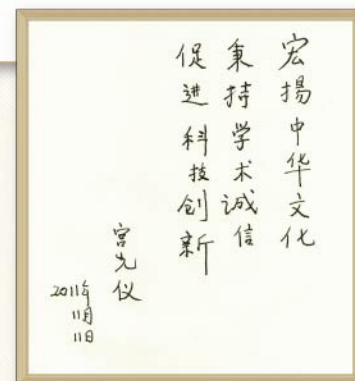 宏揚中华文化
秉持学术诚信
促进科技创新
宫先仪
2011年
11月
11日